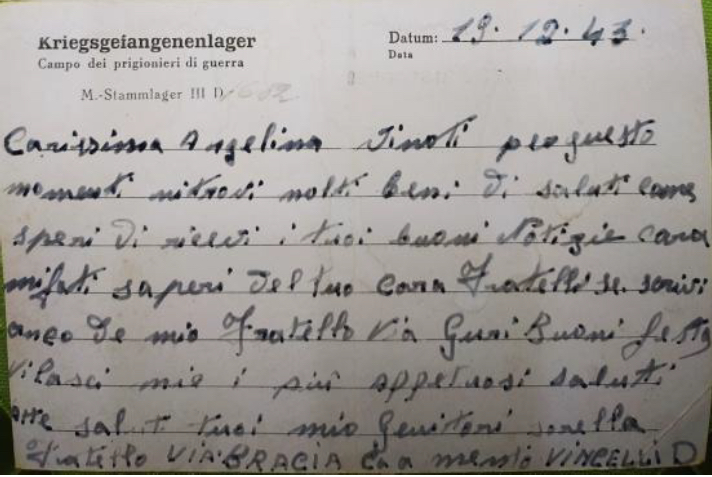 Kriegsgefangenenlager
Campo dei prigionieri di guerra
M.-Stammlager III D
Datum: 19.12.43.
Data
Carissima Angelina
momenti mitrovi molti beni di saluti come
speri di ricevi i tuoi buoni Notizie cara
mifati saperi del tuo cara Fratelli se scrivi
anco de mio Fratello Via Guri Buoni festa
Vi lasci mie i più affetuosi saluti
salut tuoi mio Genitori sorella
Fratello VIA BRACIA VINCELLI D